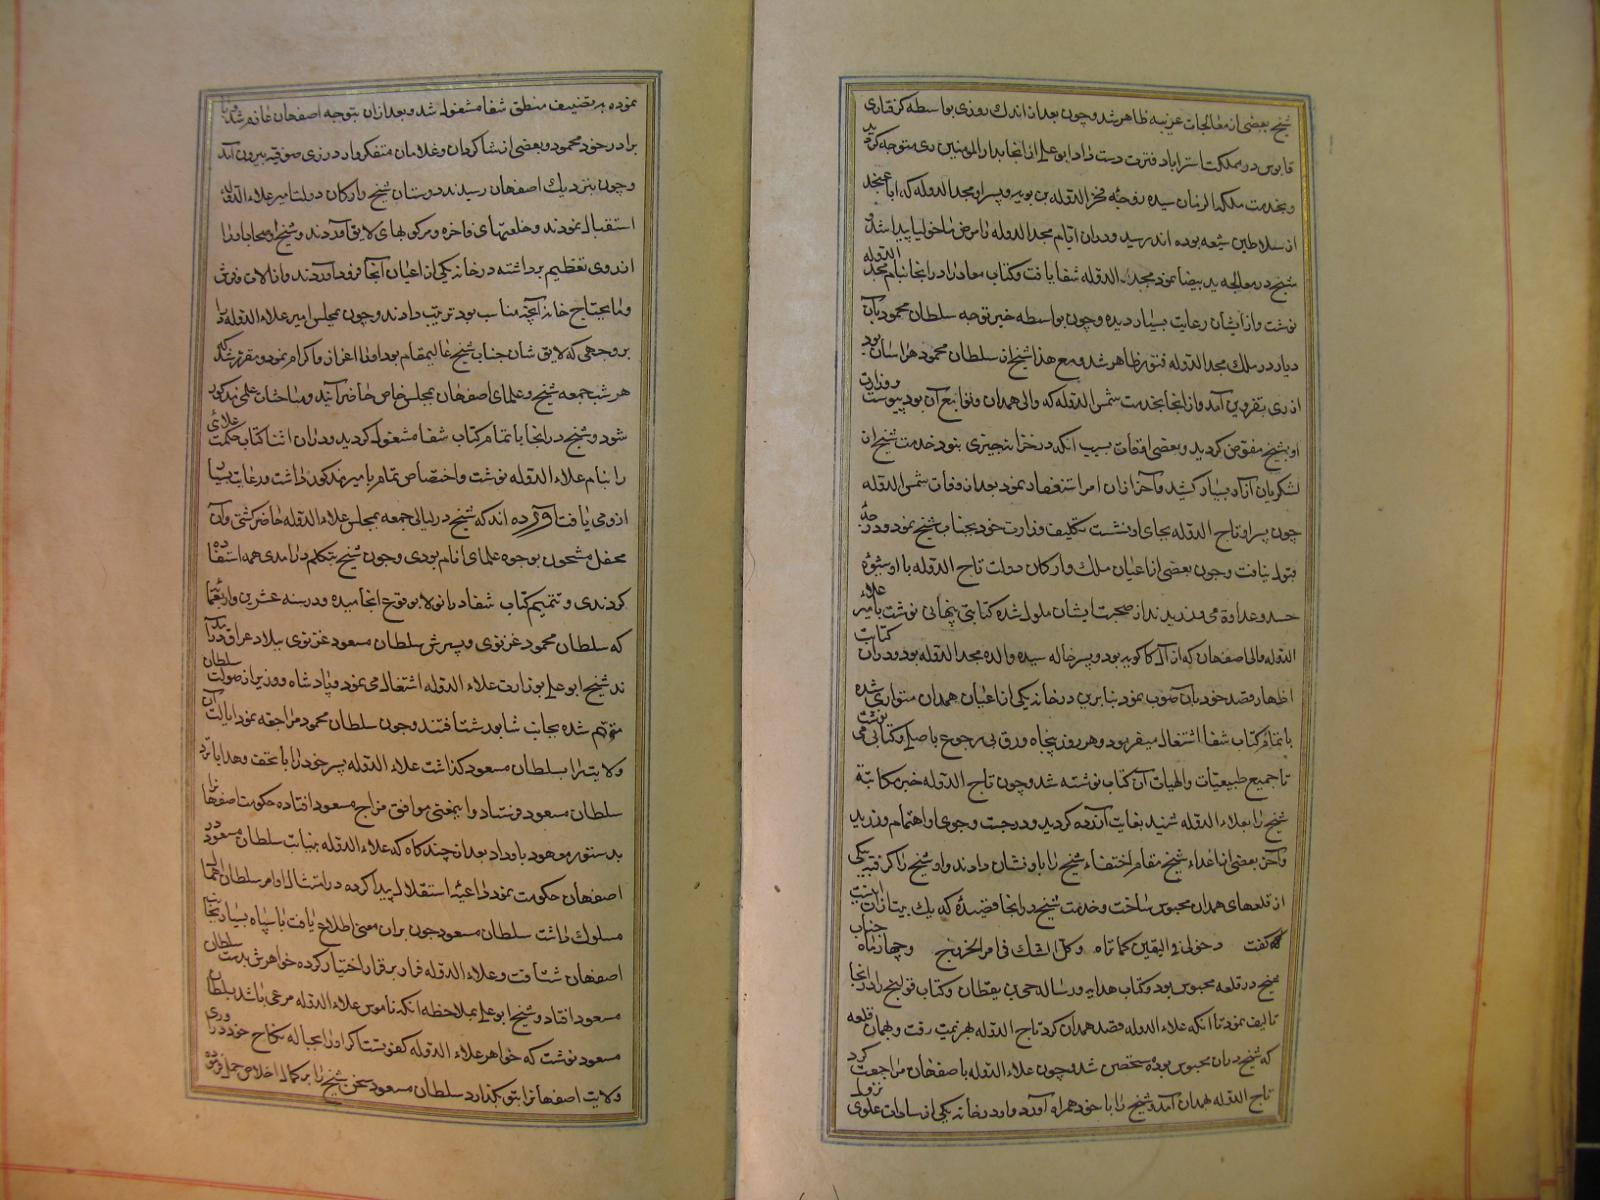 شیخ بعضی از معالجات غریبه ظاهر شد و چون بعد از اندک روزی بواسطه گرفتاری
قابوس در مملکت استراباد فترت دست داد ابو علی از انجا بدار المومنین ری متوجه کردید
و بخدمت ملکه الزمان سیده زوجهٔ فخر الدوله بن بویه و پسر او مجد الدوله که ابا عنجد
از سلاطین شیعه بوده اند رسید و دران ایام مجد الدوله را مرض مالخولیا پیدا شد و
شیخ در معالجه ید بیضا نمود مجد الدوله شفا یافت و کتاب معاد را در انجا بنام مجد الدوله
نوشت و از ایشان رعایت بسیار دیده و چون بواسطه خبر توجه سلطان محمود بآن
دیار در ملک مجد الدوله فتور ظاهر شد و مع هذا شیخ از سلطان محمود هراسان بود
از ری بقزوین آمد و از انجا بخدمت شمس الدوله که والی همدان و توابع آن بود پیوست و وزارت
او بشیخ مفوض کردید و بعضی اوقات بسبب انکه در خزانه چیزی نبود خدمت شیخ از
لشکریان آزار بسیار کشید و آخر ازان امر استعفا نمود بعد از وفات شمس الدوله
چون پسر او تاج الدوله بجای او نشست تکلیف وزارت خود بجناب شیخ نمود و درجهٔ
قبول نیافت و چون بعضی از اعیان ملک و ارکان دولت تاج الدوله با او شیوهٔ
حسد و عداوة می ورزیدند از صحبت ایشان ملول شده کتابتی پنهانی نوشت بامیر علاء
الدوله والی اصفهان که از آل کاکویه بود و پسر خاله سیده والده مجد الدوله بود و دران کتابت
اظهار قصد خود بآن صوب نمود بنابرین در خانه یکی از اعیان همدان متواری شده
باتمام کتاب شفا اشتغال میفرمود و هر روز پنجاه ورق بی رجوع باصلی و کتابی می نوشت
تا جمیع طبیعیّات و الهیات آن کتاب نوشته شد و چون تاج الدوله خبر مکاتبهٔ
شیخ را بعلاء الدوله شنید بغایت آزرده کردید و در جست و جوی او اهتمام ورزید
و آخر بعضی از اعداء شیخ مقام اختفاء شیخ را باو نشان دادند و او شیخ را کرفته بیکی
از قلعهای همدان محبوس ساخت و خدمت شیخ در انجا قصیدهٔ که یک بیت ازان اینست
که گفت دخولی بالیقین کما تراه وکل الشک فی امر الخروج و چهار ماه جناب
شیخ در قلعه محبوس بود و کتاب هدایه و رساله حی بن یقظان و کتاب قولنج را در انجا
تالیف نمود تا انکه علاء الدوله قصد همدان کرد تاج الدوله بهزیمت رفت و بهمان قلعه
که شیخ دران محبوس بوده متحصن شد و چون علاء الدوله باصفهان مراجعت کرد
تاج الدوله بهمدان آمد و شیخ را با خود همراه آورد و او در خانه یکی از سادات علوی نزول
نموده به تصنیف منطق شفا مشغول شد و بعد ازان بتوجه اصفهان عازم شد و با
برادر خود محمود و بعضی از شاگردان و غلامان متفکروار در زی صوفیه بیرون آمد
و چون بنزدیک اصفهان رسیدند دوستان شیخ و ارکان دولت امیر علاء الدوله
استقبال نمودند و خلعتهای فاخره و مرکوبهای لایق آوردند و شیخ و اصحاب او را
از روی تعظیم برداشته در خانه یکی از اعیان آنجا فرود آوردند و از آلات و فرش
و مایحتاج خانه آنچه مناسب بود ترتیب دادند و چون بمجلس امیر علاء الدوله درآمد
بر وجهی که لایق شان جناب شیخ عالیمقام بود او را اعزاز و اکرام نمود و مقرر شد که
هر شب جمعه شیخ و علمای اصفهان بمجلس خاص حاضر آیند و مباحثات علمی مذکور
شود و شیخ در انجا باتمام کتاب شفا مشغول کردید و دران اثنا کتاب حکمت علائی
را بنام علاء الدوله نوشت و اختصاص تمام بامیر مذکور داشت و رعایت بسیار
ازو می یافت آورده اند که شیخ در لیالی جمعه بمجلس علاء الدوله حاضر کشتی و آن
محفل مشحون بوجوه علمای انام بودی و چون شیخ بتکلم درامدی همه استفاده
کردندی و تتمیم کتاب شفا در انولا بوقوع انجامیده و در سنه عشرین و اربعمائه
که سلطان محمود غزنوی و پسرش سلطان مسعود غزنوی ببلاد عراق درآمد
ند شیخ ابو علی بوزارت علاء الدوله اشتغال می نمود و پادشاه و وزیر از صولت سلطان
متوهم شده بجانب شابور شتافتند و چون سلطان محمود مراجعه نمود ایالت آن
ولایت را بسلطان مسعود کذاشت علاء الدوله پسر خود را با تحف و هدایا نزد
سلطان مسعود فرستاد و این معنی موافق مزاج مسعود افتاده حکومت اصفهان را
بدستور موعود باو داد بعد از چند کاه که علاء الدوله بنیابت سلطان مسعود در
اصفهان حکومت نمود داعیه استقلال پیدا کرده در امتثال اوامر سلطان اهمال
مسلوک داشت سلطان مسعود چون بران معنی اطلاع یافت با سپاه بسیار بجانب
اصفهان شتافت و علاء الدوله فرار بر قرار اختیار کرده خواهرش بدست سلطان
مسعود افتاد و شیخ ابو علی بملاحظه انکه ناموس علاء الدوله مرعی باشد بسلطان
مسعود نوشت که خواهر علاء الدوله کفو تست اکر او را بحباله نکاح خود دراوری
ولایت اصفهان را بتو بگذارد سلطان مسعود سخن شیخ را بر کمال اخلاص حمل فرموده